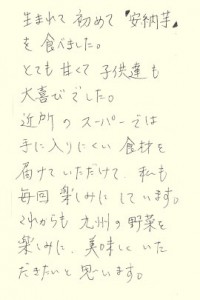 生まれて初めて「安納芋」
を食べました。
とても甘くて子供達も
大喜びでした。
近所のスーパーでは
手に入りにくい食材を
届けていただけて、私も
毎回楽しみにしています。
これからも九州の野菜を
楽しみに、美味しくいた
だきたいと思います。